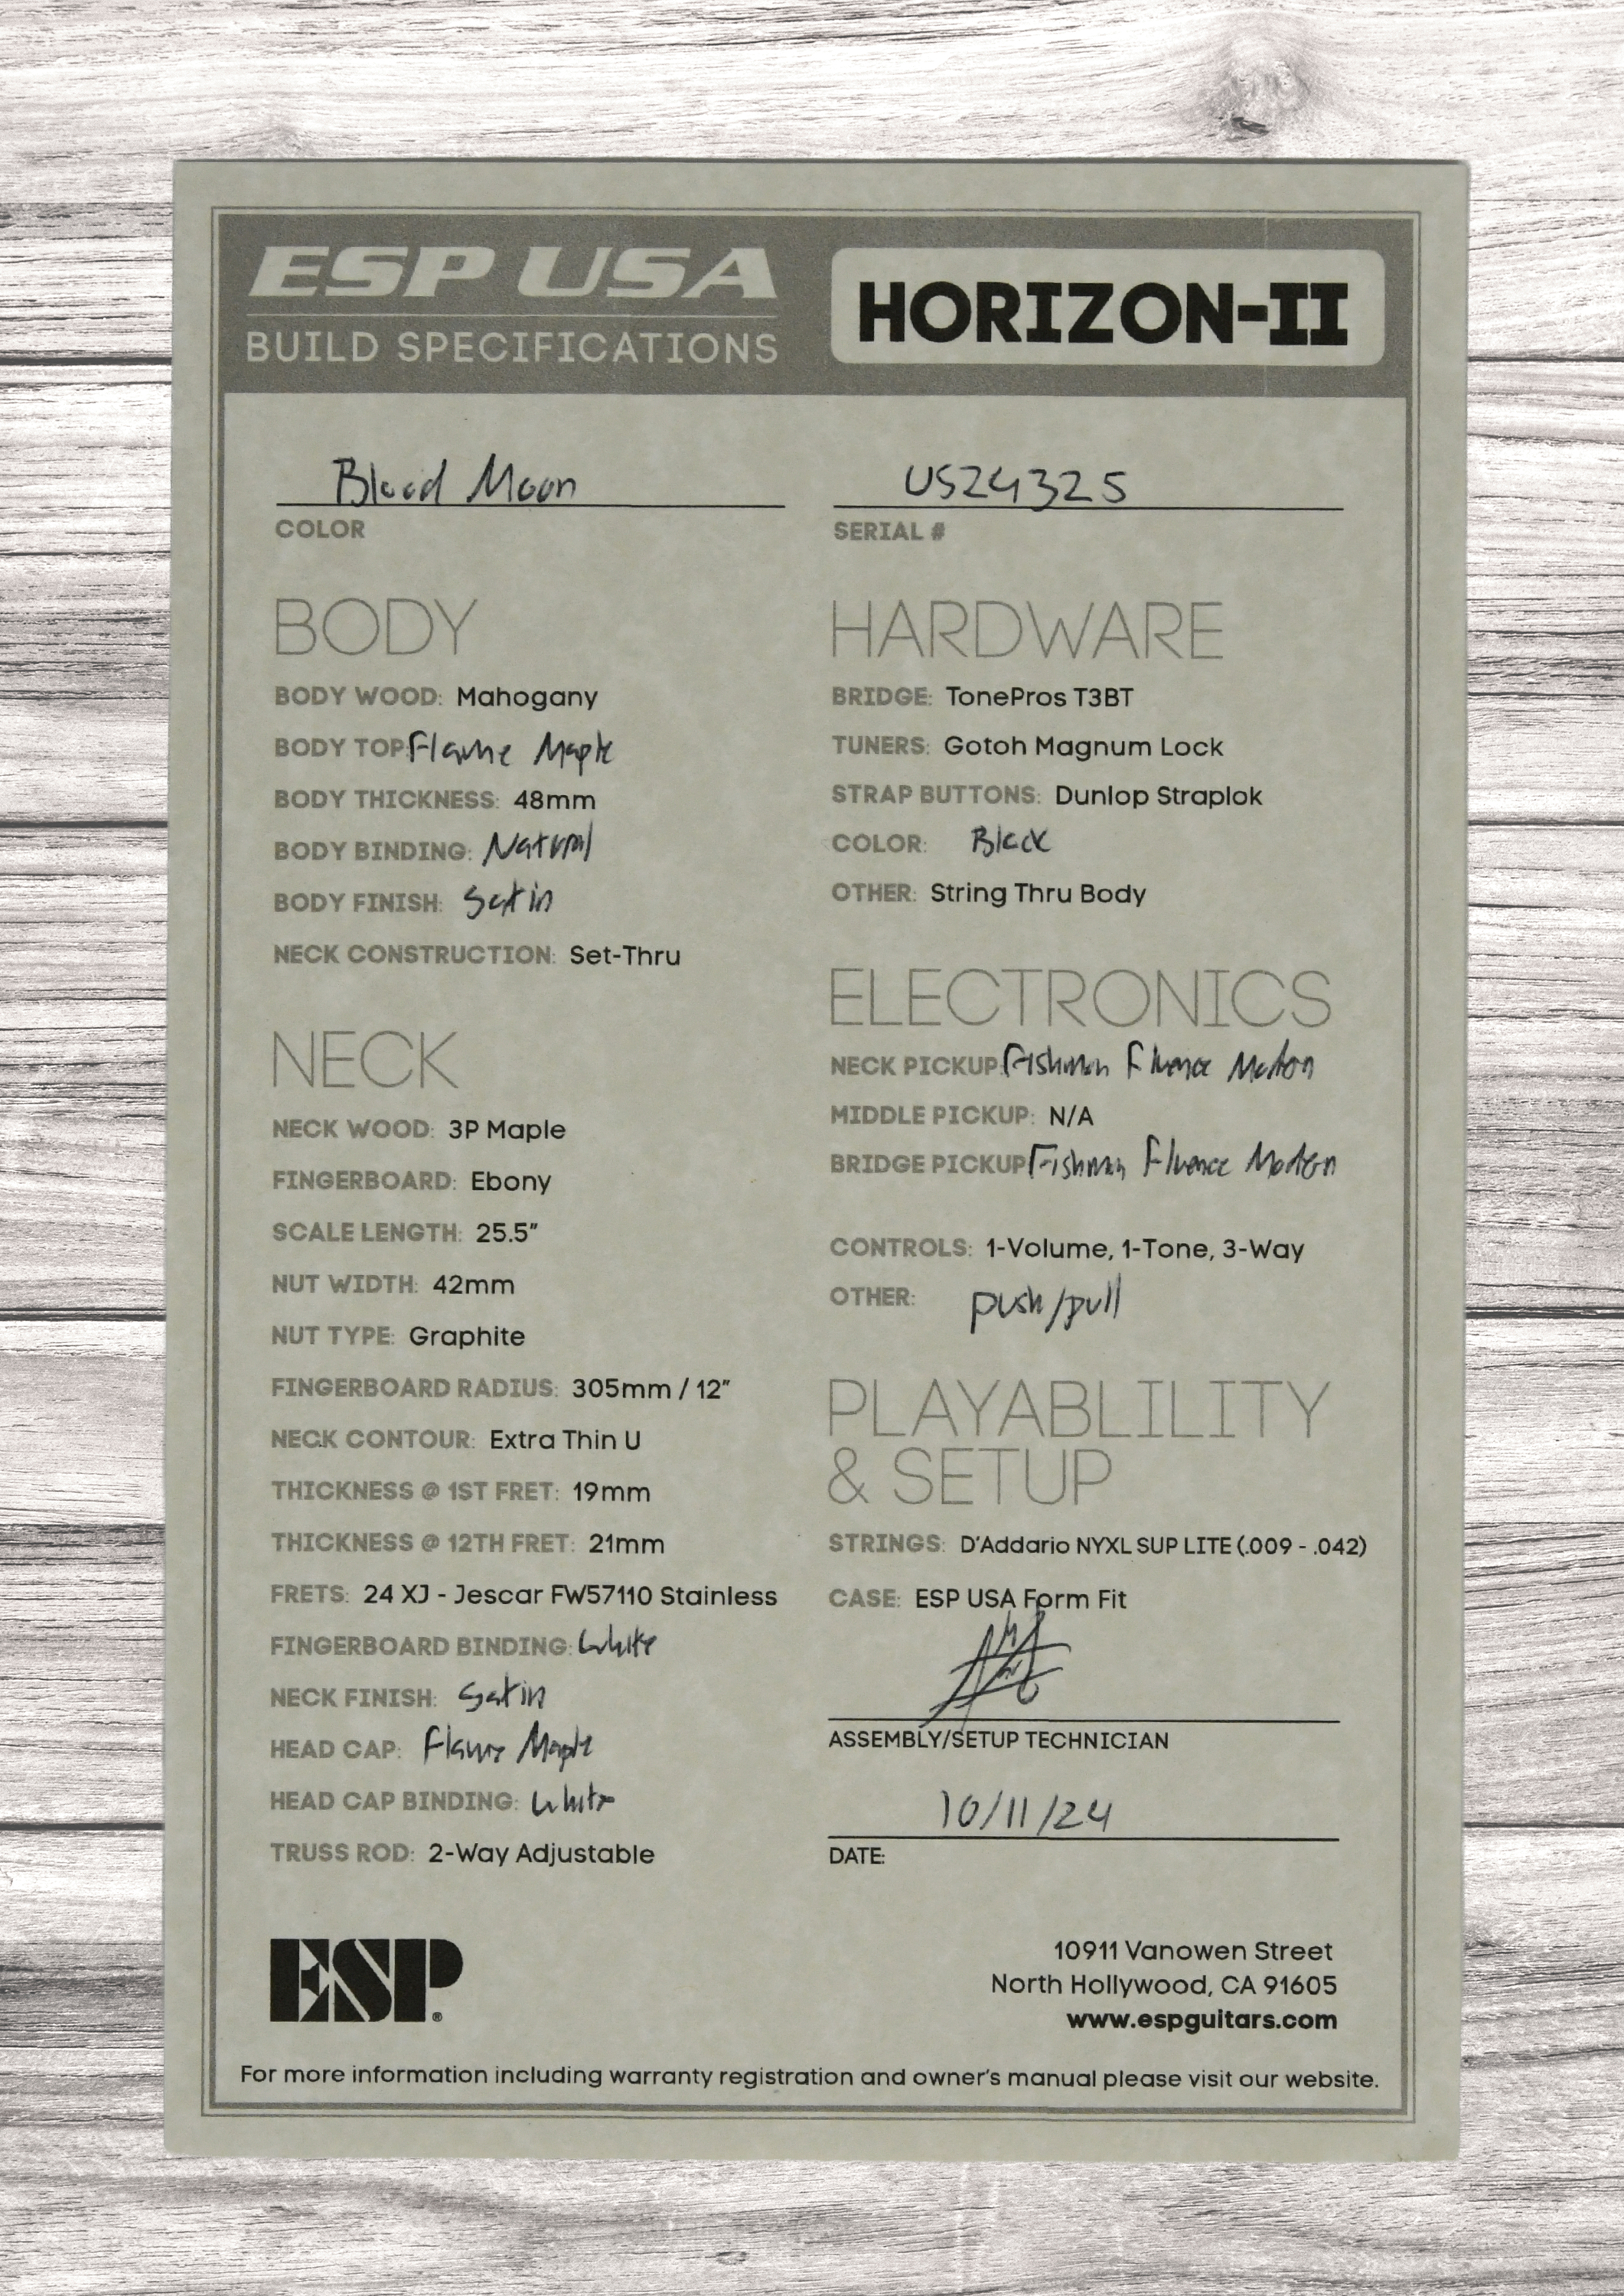 ESP USA
BUILD SPECIFICATIONS
HORIZON-II
Blood Moon
COLOR
US24325
SERIAL #
BODY
BODY WOOD: Mahogany
BODY TOP: Flame Maple
BODY THICKNESS: 48mm
BODY BINDING: Natural
BODY FINISH: Satin
NECK CONSTRUCTION: Set-Thru
NECK
NECK WOOD: 3P Maple
FINGERBOARD: Ebony
SCALE LENGTH: 25.5"
NUT WIDTH: 42mm
NUT TYPE: Graphite
FINGERBOARD RADIUS: 305mm / 12"
NECK CONTOUR: Extra Thin U
THICKNESS @ 1ST FRET: 19mm
THICKNESS @ 12TH FRET: 21mm
FRETS: 24 XJ - Jescar FW57110 Stainless
FINGERBOARD BINDING: White
NECK FINISH: Satin
HEAD CAP: Flame Maple
HEAD CAP BINDING: White
TRUSS ROD: 2-Way Adjustable
HARDWARE
BRIDGE: TonePros T3BT
TUNERS: Gotoh Magnum Lock
STRAP BUTTONS: Dunlop Straplok
COLOR: Black
OTHER: String Thru Body
ELECTRONICS
NECK PICKUP: Fishman Fluence Modern
MIDDLE PICKUP: N/A
BRIDGE PICKUP: Fishman Fluence Modern
CONTROLS: 1-Volume, 1-Tone, 3-Way
OTHER: push/pull
PLAYABLILITY
& SETUP
STRINGS: D'Addario NYXL SUP LITE (.009 - .042)
CASE: ESP USA Form Fit
ASSEMBLY/SETUP TECHNICIAN
10/11/24
DATE:
ESP®
10911 Vanowen Street
North Hollywood, CA 91605
www.espguitars.com
For more information including warranty registration and owner's manual please visit our website.